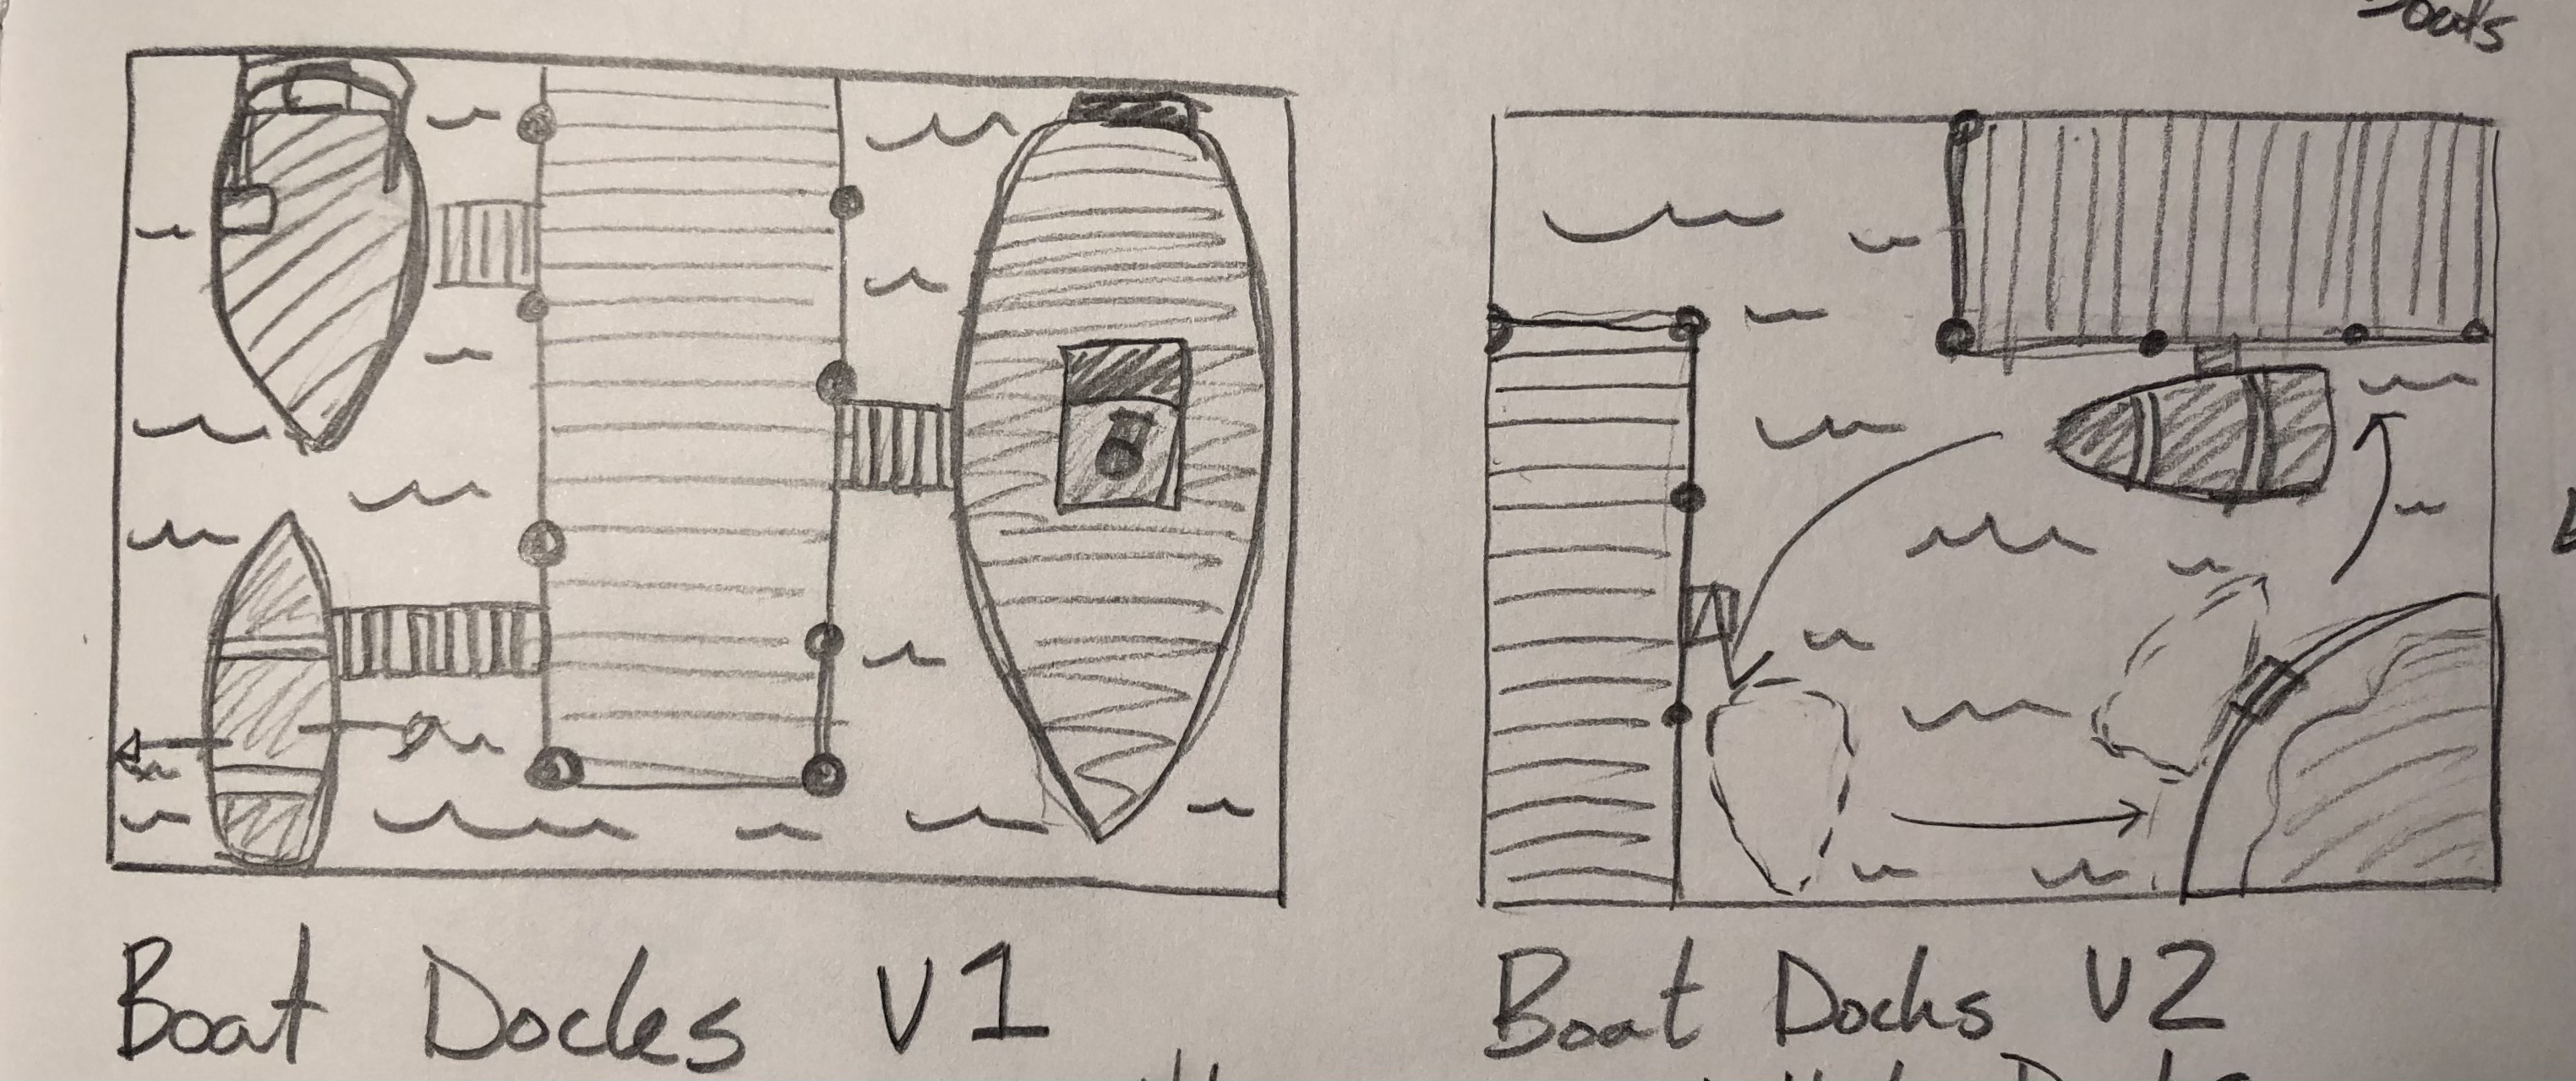 Boats
Boat Docks V1
Boat Docks V2